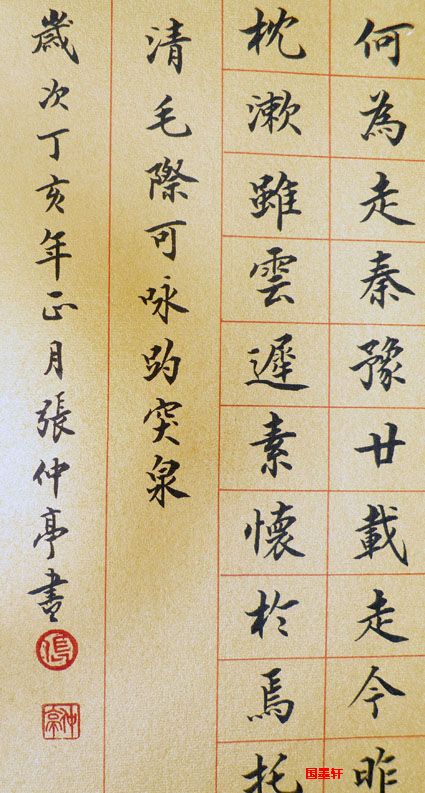 何為走秦豫廿載走今昨
枕漱雖雲遲素懷於焉托
清毛際可咏趵突泉
歲次丁亥年正月張仲亭書
張
仲亭
国墨轩